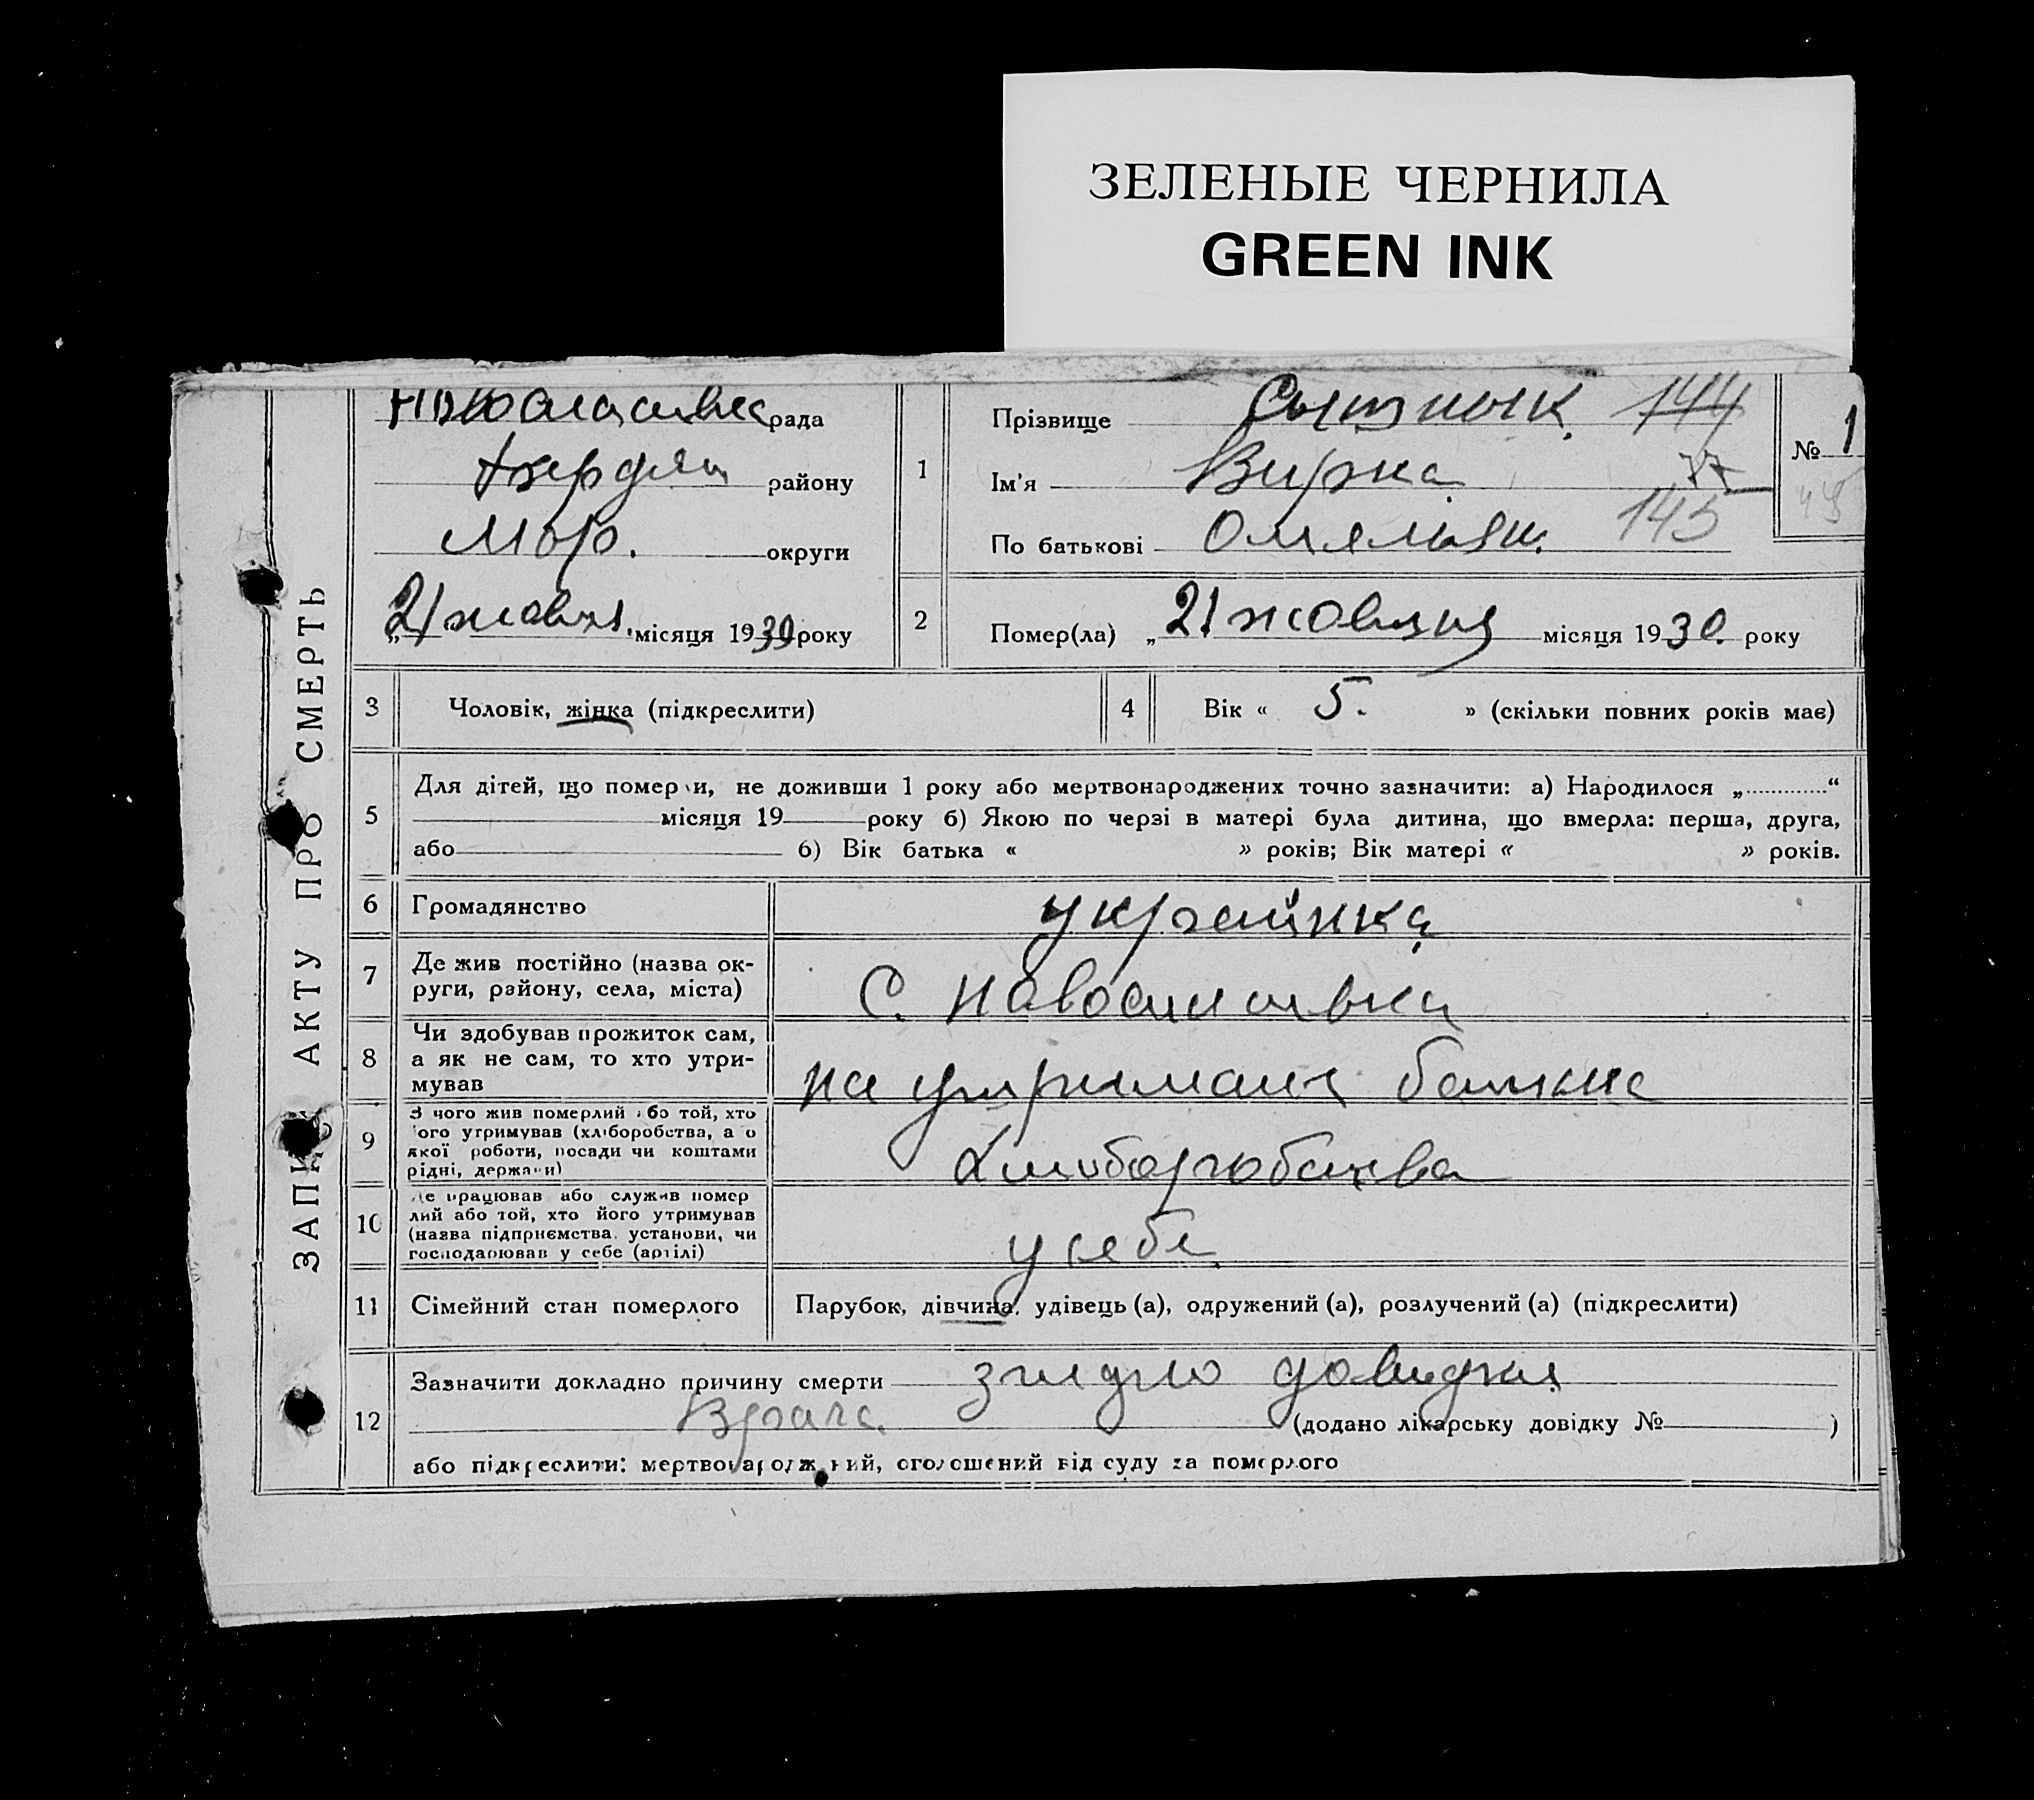 ЗЕЛЕНЫЕ ЧЕРНИЛА
GREEN INK
ЗАПИС АКТУ ПРО СМЕРТЬ
рада
району
округи
„21 жовтн. місяця 1930 року
1
Прізвище 144
Ім'я 77
По батькові 145
№ 1
2
Помер(ла) „21 жовтня місяця 1930. року
3
Чоловік, жінка (підкреслити)
4
Вік « 5. » (скільки повних років має)
5
Для дітей, що померли, не доживши 1 року або мертвонароджених точно зазначити: а) Народилося „ “
місяця 19 року б) Якою по черзі в матері була дитина, що вмерла: перша, друга,
або 6) Вік батька « » років; Вік матері « » років.
6
Громадянство
українка
7
Де жив постійно (назва ок-
руги, району, села, міста)
С.
8
Чи здобував прожиток сам,
а як не сам, то хто утри-
мував
на утримані батька
9
З чого жив померлий або той, хто
його утримував (хліборобства, а о
якої роботи, посади чи коштами
рідні, держави)
Хліборобства
10
Де працював або служив помер
лий або той, хто його утримував
(назва підприємства, установи, чи
господарював у себе (артілі)
у себе
11
Сімейний стан померлого
Парубок, дівчина, удівець (а), одружений (а), розлучений (а) (підкреслити)
12
Зазначити докладно причину смерти згидно довидки
Врача. (додано лікарську довідку № )
або підкреслити: мертвонароджений, оголошений від суду за померлого